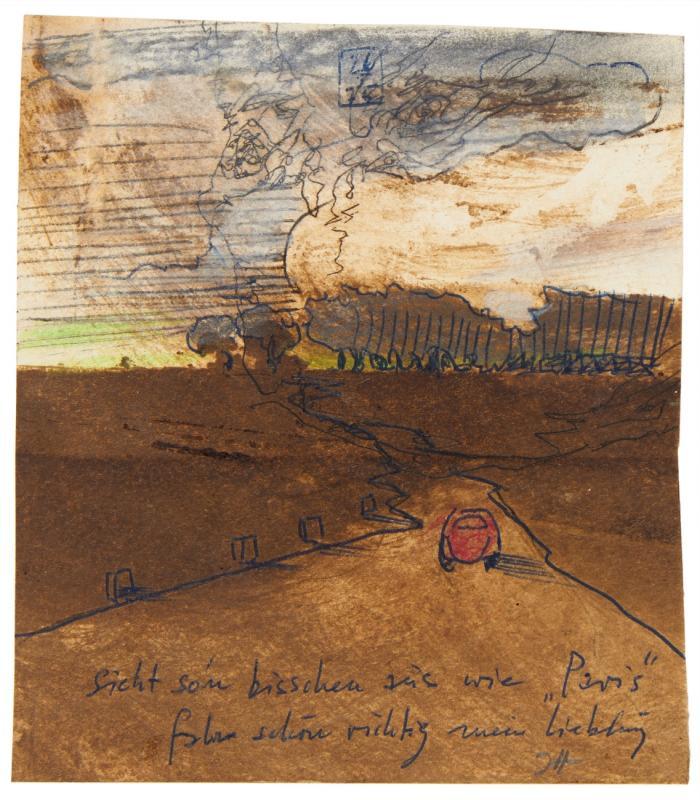 sieht so'n bisschen aus wie „Paris“
fahre schön richtig mein Liebling
JH